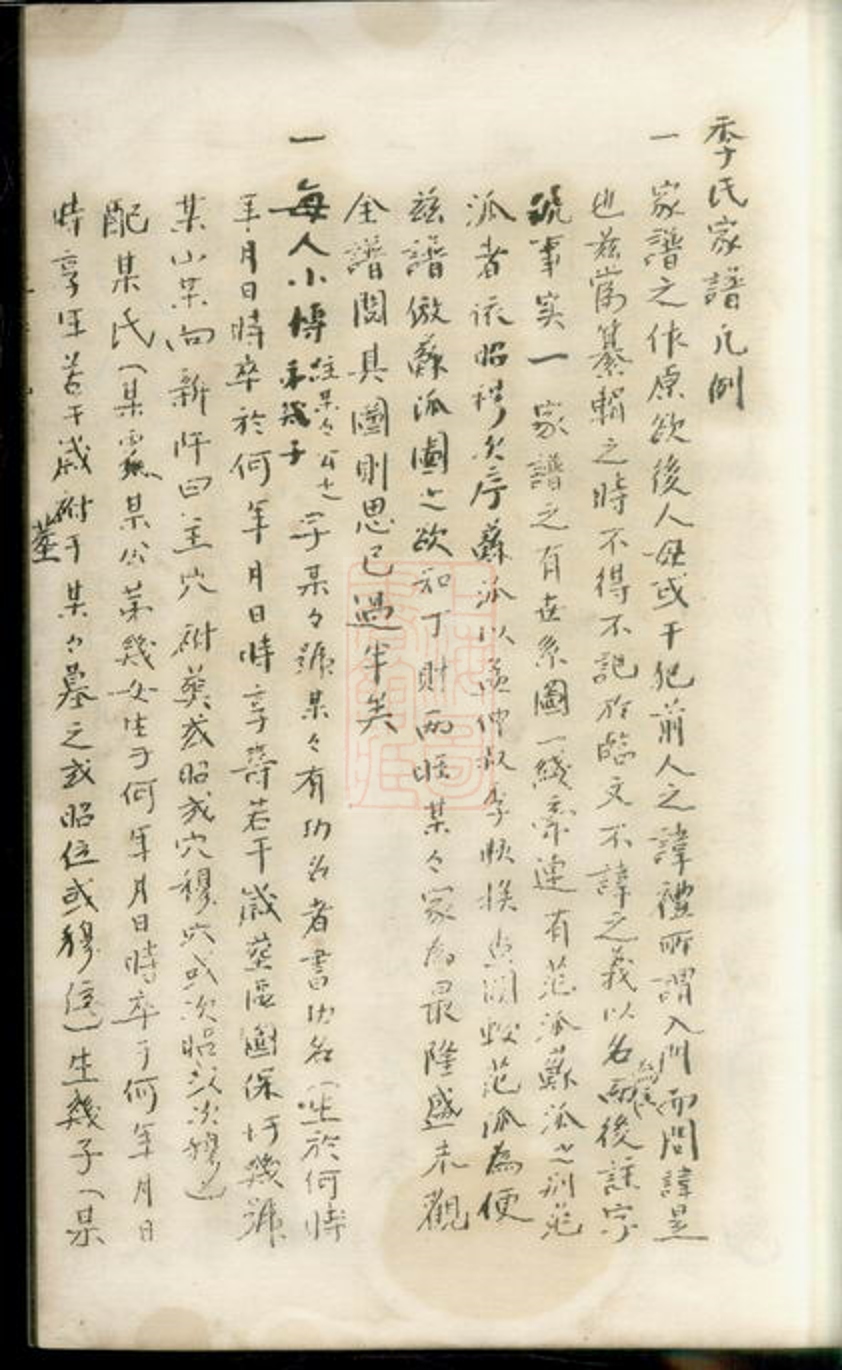 季氏家譜凡例
一 家譜之作原欲後人毋或干犯前人之諱禮所謂入門而問諱是
也茲當纂輯之時不得不記於臨文不諱之義以名為諱而後註字
號事实一 家譜之有世系圖一綫牽連有范派蘇派之別范
派者依昭穆次序蘇派以孟仲叔季順挨查閱蛟范派為便
茲譜倣蘇派圖之欲知丁財兩旺某々家為最隆盛未觀
全譜閱其圖則思已過半矣
一 每人小傳註某々公之第幾子字某々號某々有功名者書功名(生於何時
年月日時卒於何年月日時享壽若干歲塋區圖保圩幾號
某山某向新阡曰主穴 祔葬或昭或穴穆穴或次昭或次穆)
配某氏(某處某公第幾女生于何年月日時卒于何年月日
時享年若干歲祔于某々墓塋之或昭位或穆位)生幾子(某